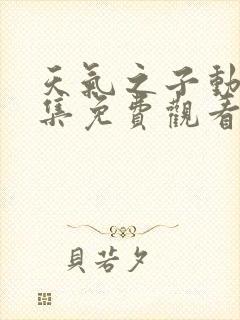 天氣之子動
集免費觀看
貝若夕